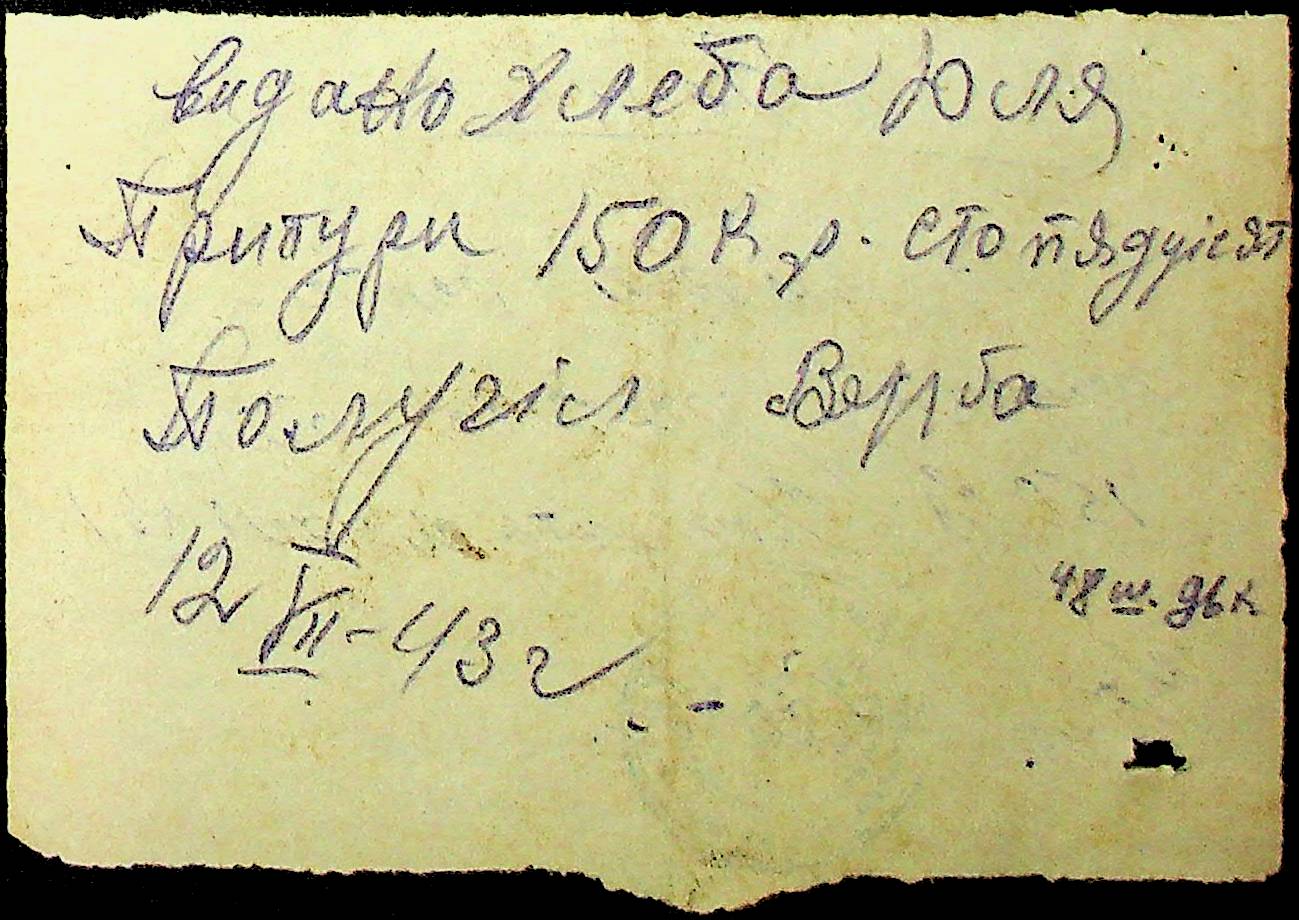 видано хлеба для
Притури 150 кг. сто пяддісят
Получіл Верба
12 VII - 43 г
48 ш.